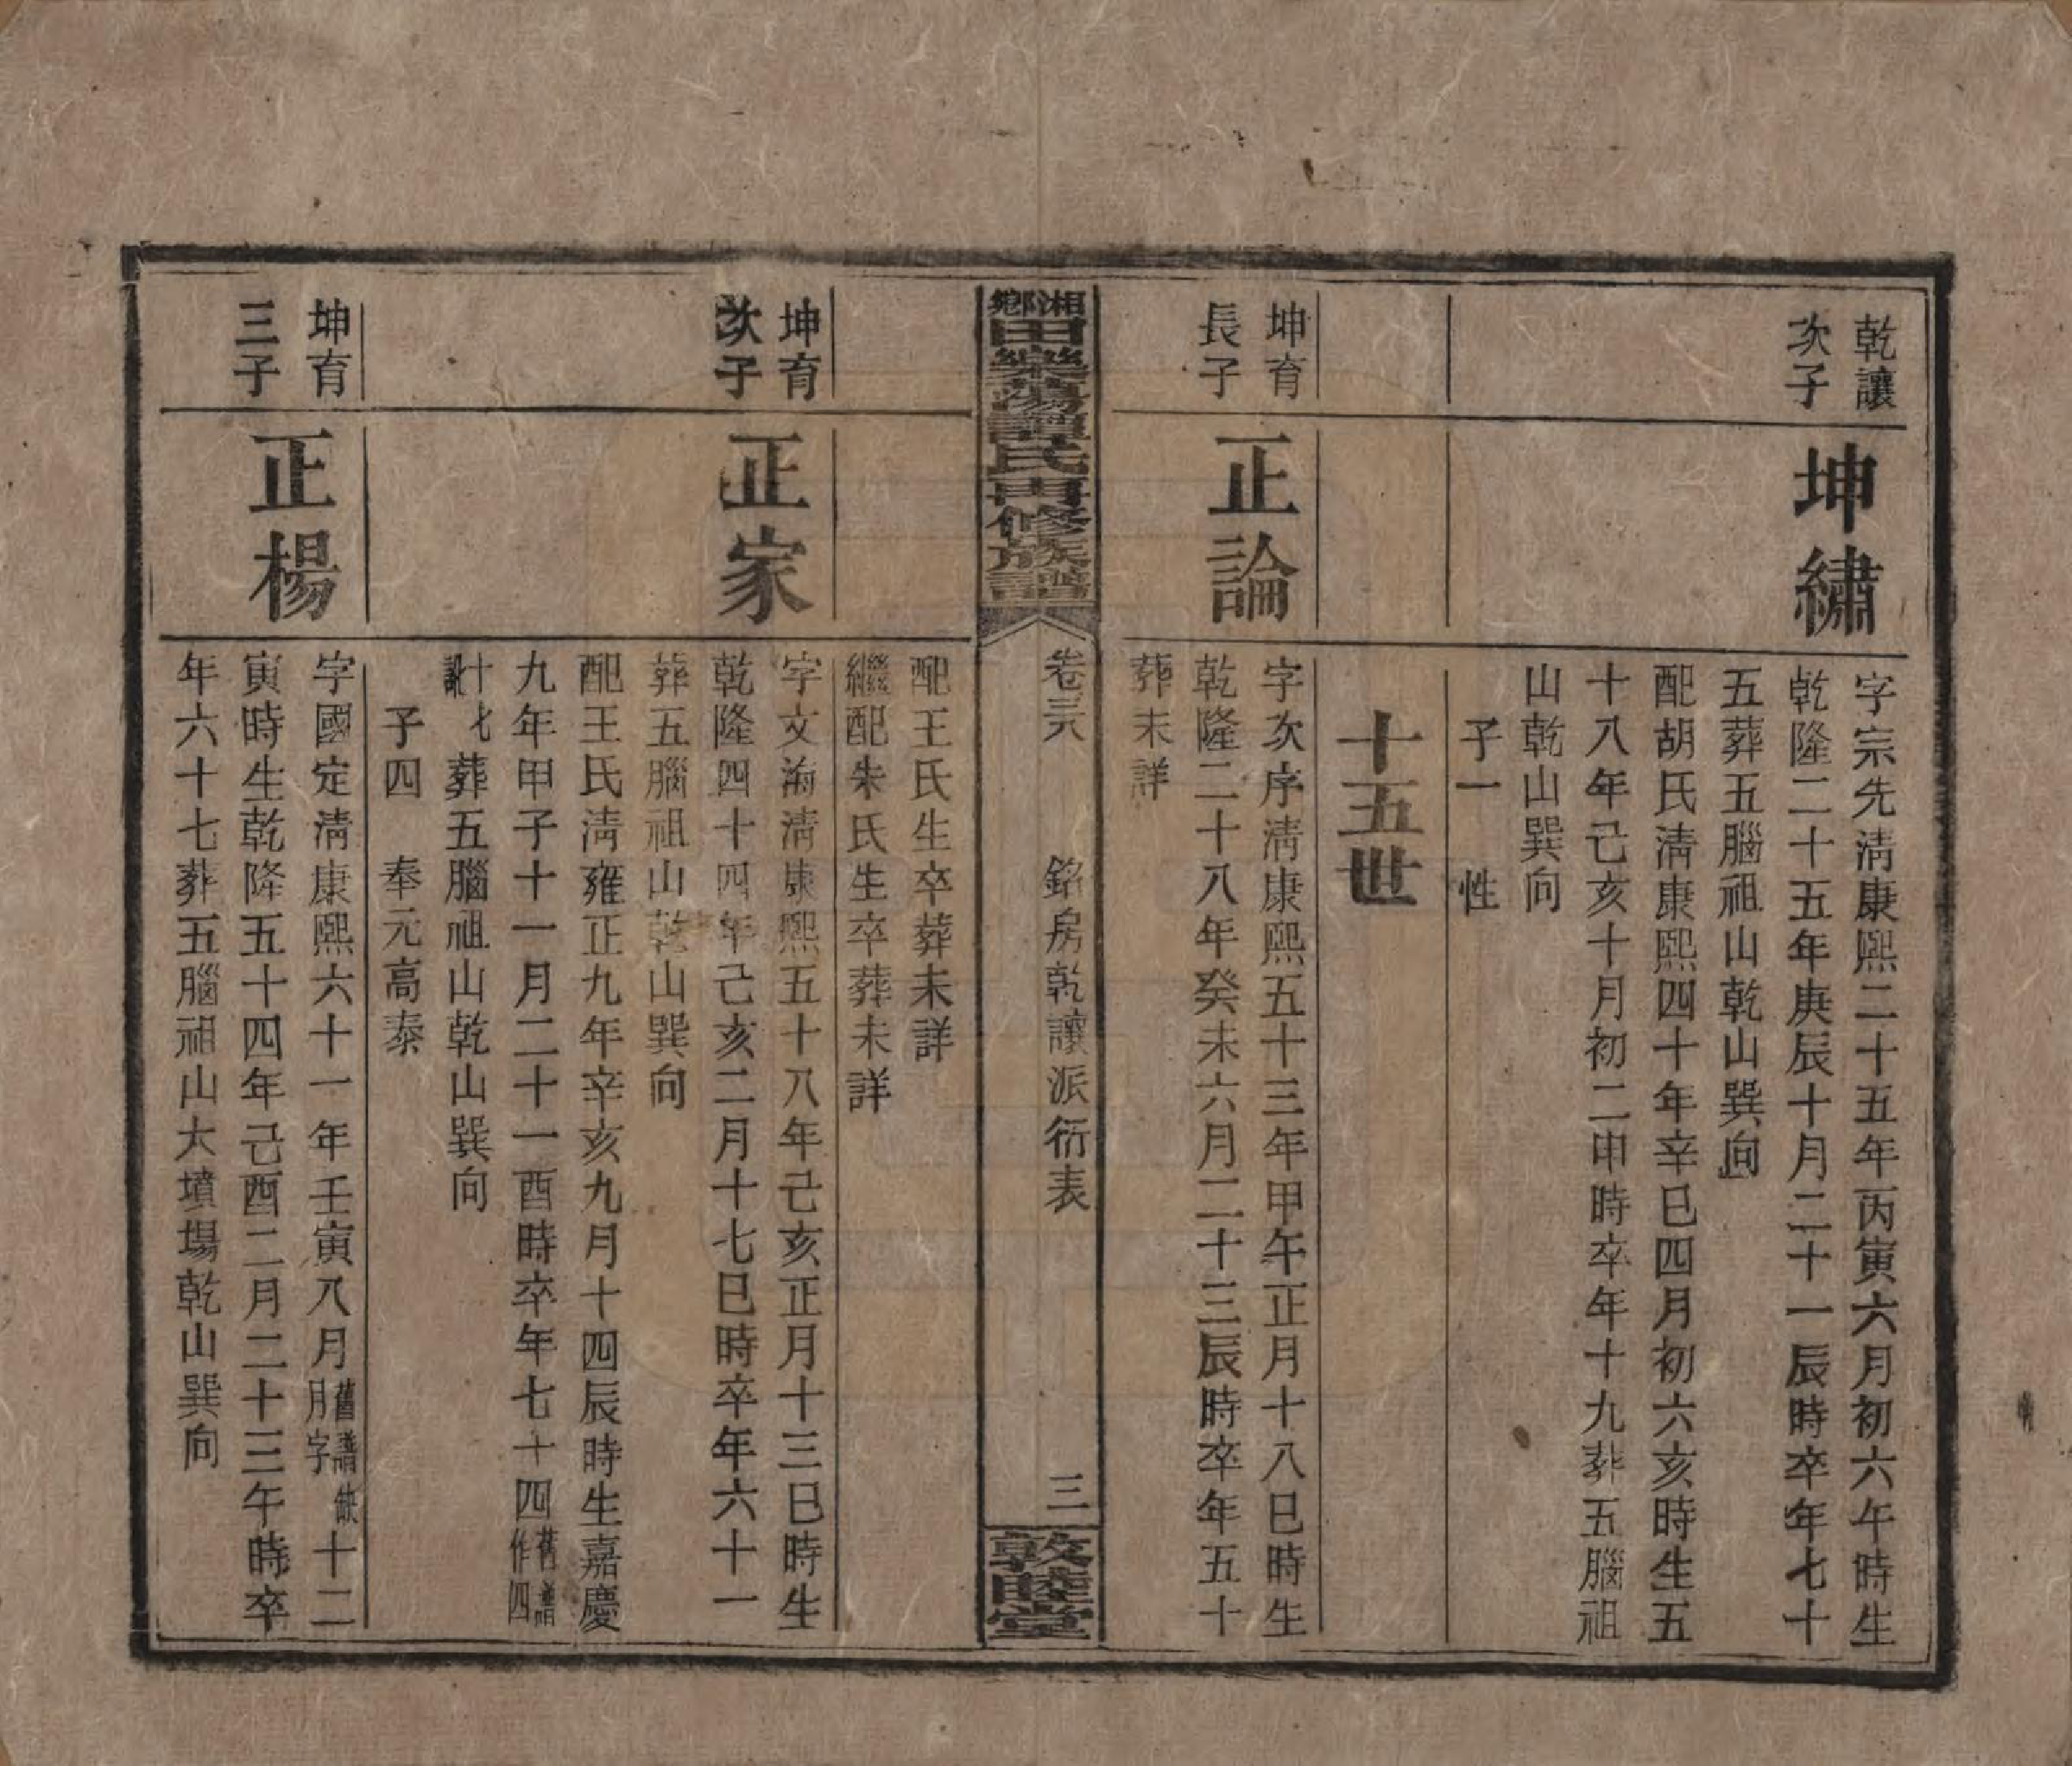 乾讓
次子
坤繡
字宗先淸康熙二十五年丙寅六月初六午時生
乾隆二十五年庚辰十月二十一辰時卒年七十
五葬五腦祖山乾山巽向
配胡氏淸康熙四十年辛巳四月初六亥時生五
十八年己亥十月初二申時卒年十九葬五腦祖
山乾山巽向
子一　性
十五世
坤育
長子
正論
字次序淸康熙五十三年甲午正月十八巳時生
乾隆二十八年癸未六月二十三辰時卒年五十
葬未詳
湘鄉田樂蕩譚氏再修族譜
卷三六　銘房乾讓派衍表　三
敦睦堂
配王氏生卒葬未詳
繼配朱氏生卒葬未詳
坤育
次子
正家
字文海淸康熙五十八年己亥正月十三巳時生
乾隆四十四年己亥二月十七巳時卒年六十一
葬五腦祖山乾山巽向
配王氏淸雍正九年辛亥九月十四辰時生嘉慶
九年甲子十一月二十一酉時卒年七十四舊譜作四
十七訛葬五腦祖山乾山巽向
子四　奉元高泰
坤育
三子
正楊
字國定淸康熙六十一年壬寅八月舊譜缺月字十二
寅時生乾隆五十四年己酉二月二十三午時卒
年六十七葬五腦祖山大墳場乾山巽向